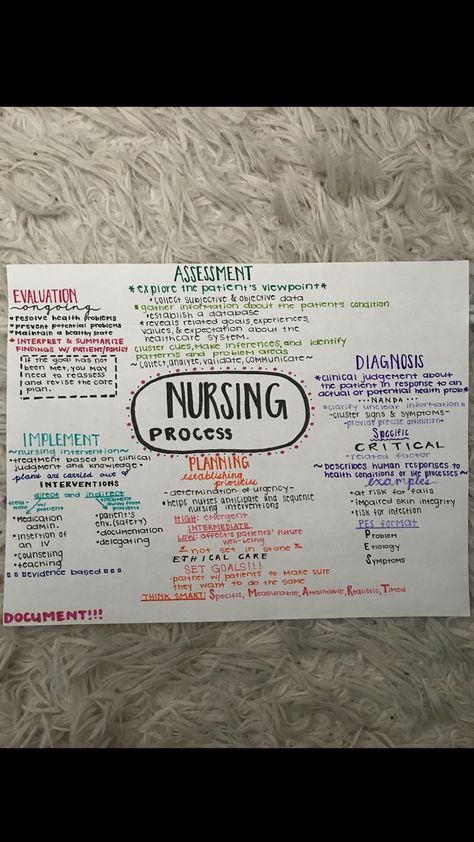 ASSESSMENT
*explore the patient's viewpoint*
*collect subjective & objective data
*gather information about the patient's condition
*establish a database
*reveals related goals, experiences,
values, & expectation about the
healthcare system.
cluster cues, make inferences, and identify
patterns and problem areas
~collect, analyze, validate, communicate~
EVALUATION
~ongoing
*resolve health problems
*prevent potential problems
*maintain a healthy state
*INTERPRET & SUMMARIZE
FINDINGS W/ PATIENT/FAMILY
If the goal has not
been met, you may
need to reassess
and revise the care
plan.
NURSING
PROCESS
DIAGNOSIS
*clinical judgement about
the patient in response to an
actual or potential health prob
...NANDA...
*clarify unclear information
-cluster signs & symptoms-
*provide precise definition
Specific
CRITICAL
*related factor
~Describes human responses to
health conditions or life processes~
examples
*at risk for falls
*impaired skin integrity
*risk for infection
PES format
Problem
Etiology
Symptoms
IMPLEMENT
~nursing intervention~
*treatment based on clinical
judgment and knowledge.
plans are carried out
INTERVENTIONS
direct and indirect
treatment
w/
patient
treatment
away from
patient
*Medication
admin
*insertion of
an IV
*counseling
*teaching
*patient's
env.(safety)
*documentation
*delegating
evidence based
DOCUMENT!!!
PLANNING
establishing
priorities
-determination of urgency-
*helps nurses anticipate and sequence
nursing interventions
HIGH: emergent
INTERMEDIATE
LOW: affects patients' future
well-being
*not set in stone*
ETHICAL CARE
SET GOALS!!!
partner w/ patients to make sure
they want to do the same
THINK SMART: Specific, Measurable, Attainable, Realistic, Timed